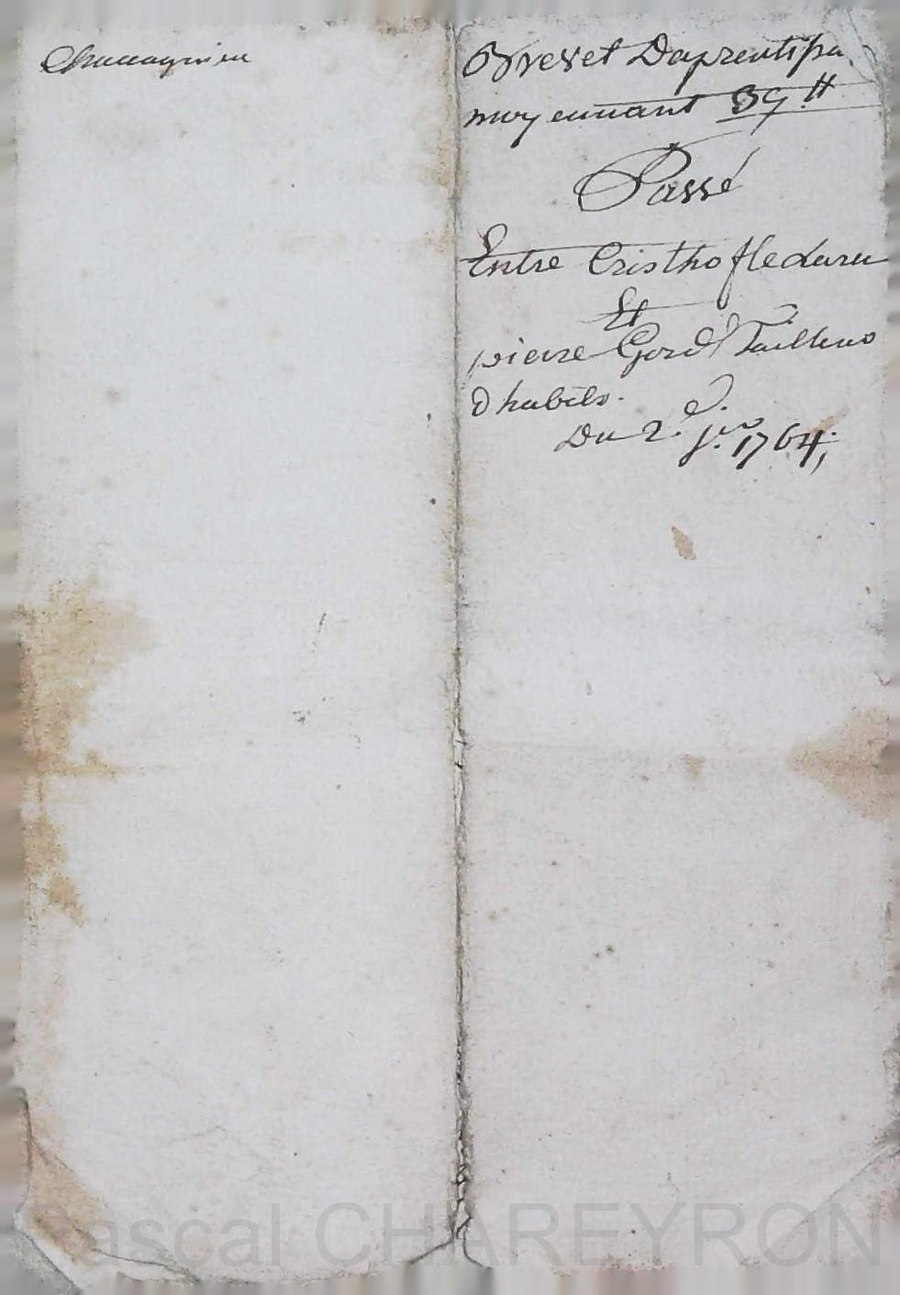 Brevet Daprentissa
moyennant 39 ₶
Passé
Entre Cristhofle
Et
pierre Gord Tailleur
dhabits.
Du 2.e j.er 1764;
Pascal CHAREYRON